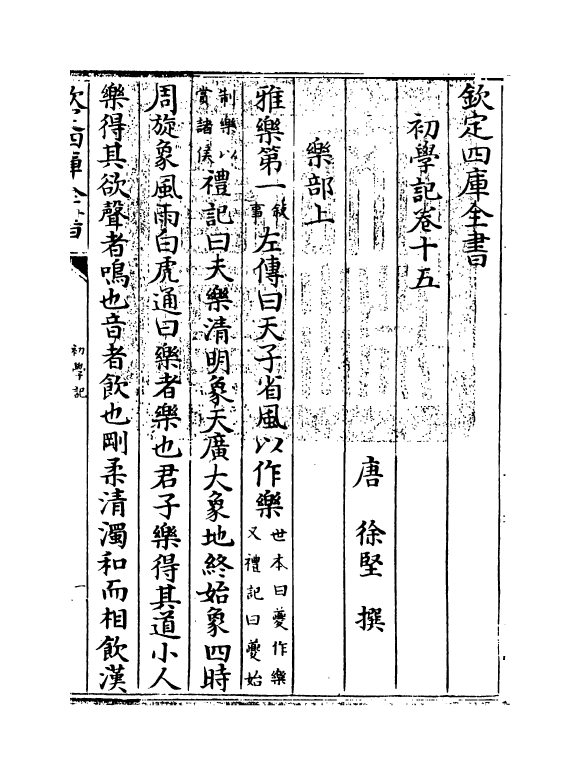 欽定四庫全書
初學記卷十五
唐 徐堅 撰
樂部上
雅樂第一敘事左傳曰天子省風以作樂世本曰夔作樂又禮記曰夔始
制樂以賞諸侯禮記曰夫樂清明象天廣大象地終始象四時
周旋象風雨白虎通曰樂者樂也君子樂得其道小人
樂得其欲聲者鳴也音者飲也剛柔清濁和而相飲漢
初學記
一